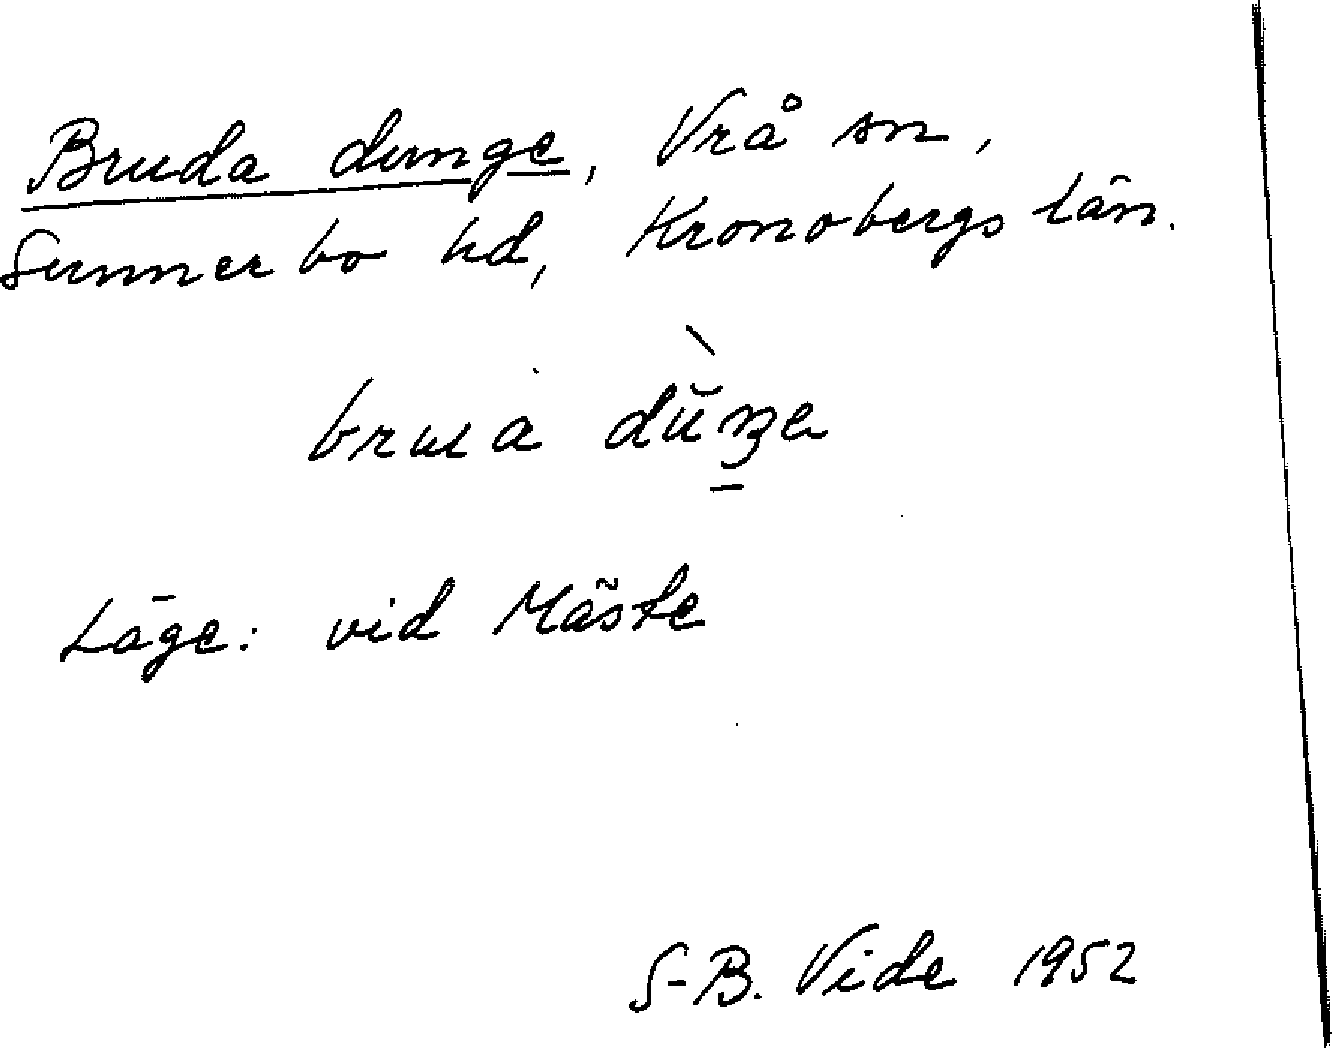 Bruda dunge, Vrå sn,
Sunnerbo hd, Kronobergs län.
Läge: vid Mäste
S-B. Vide 1952